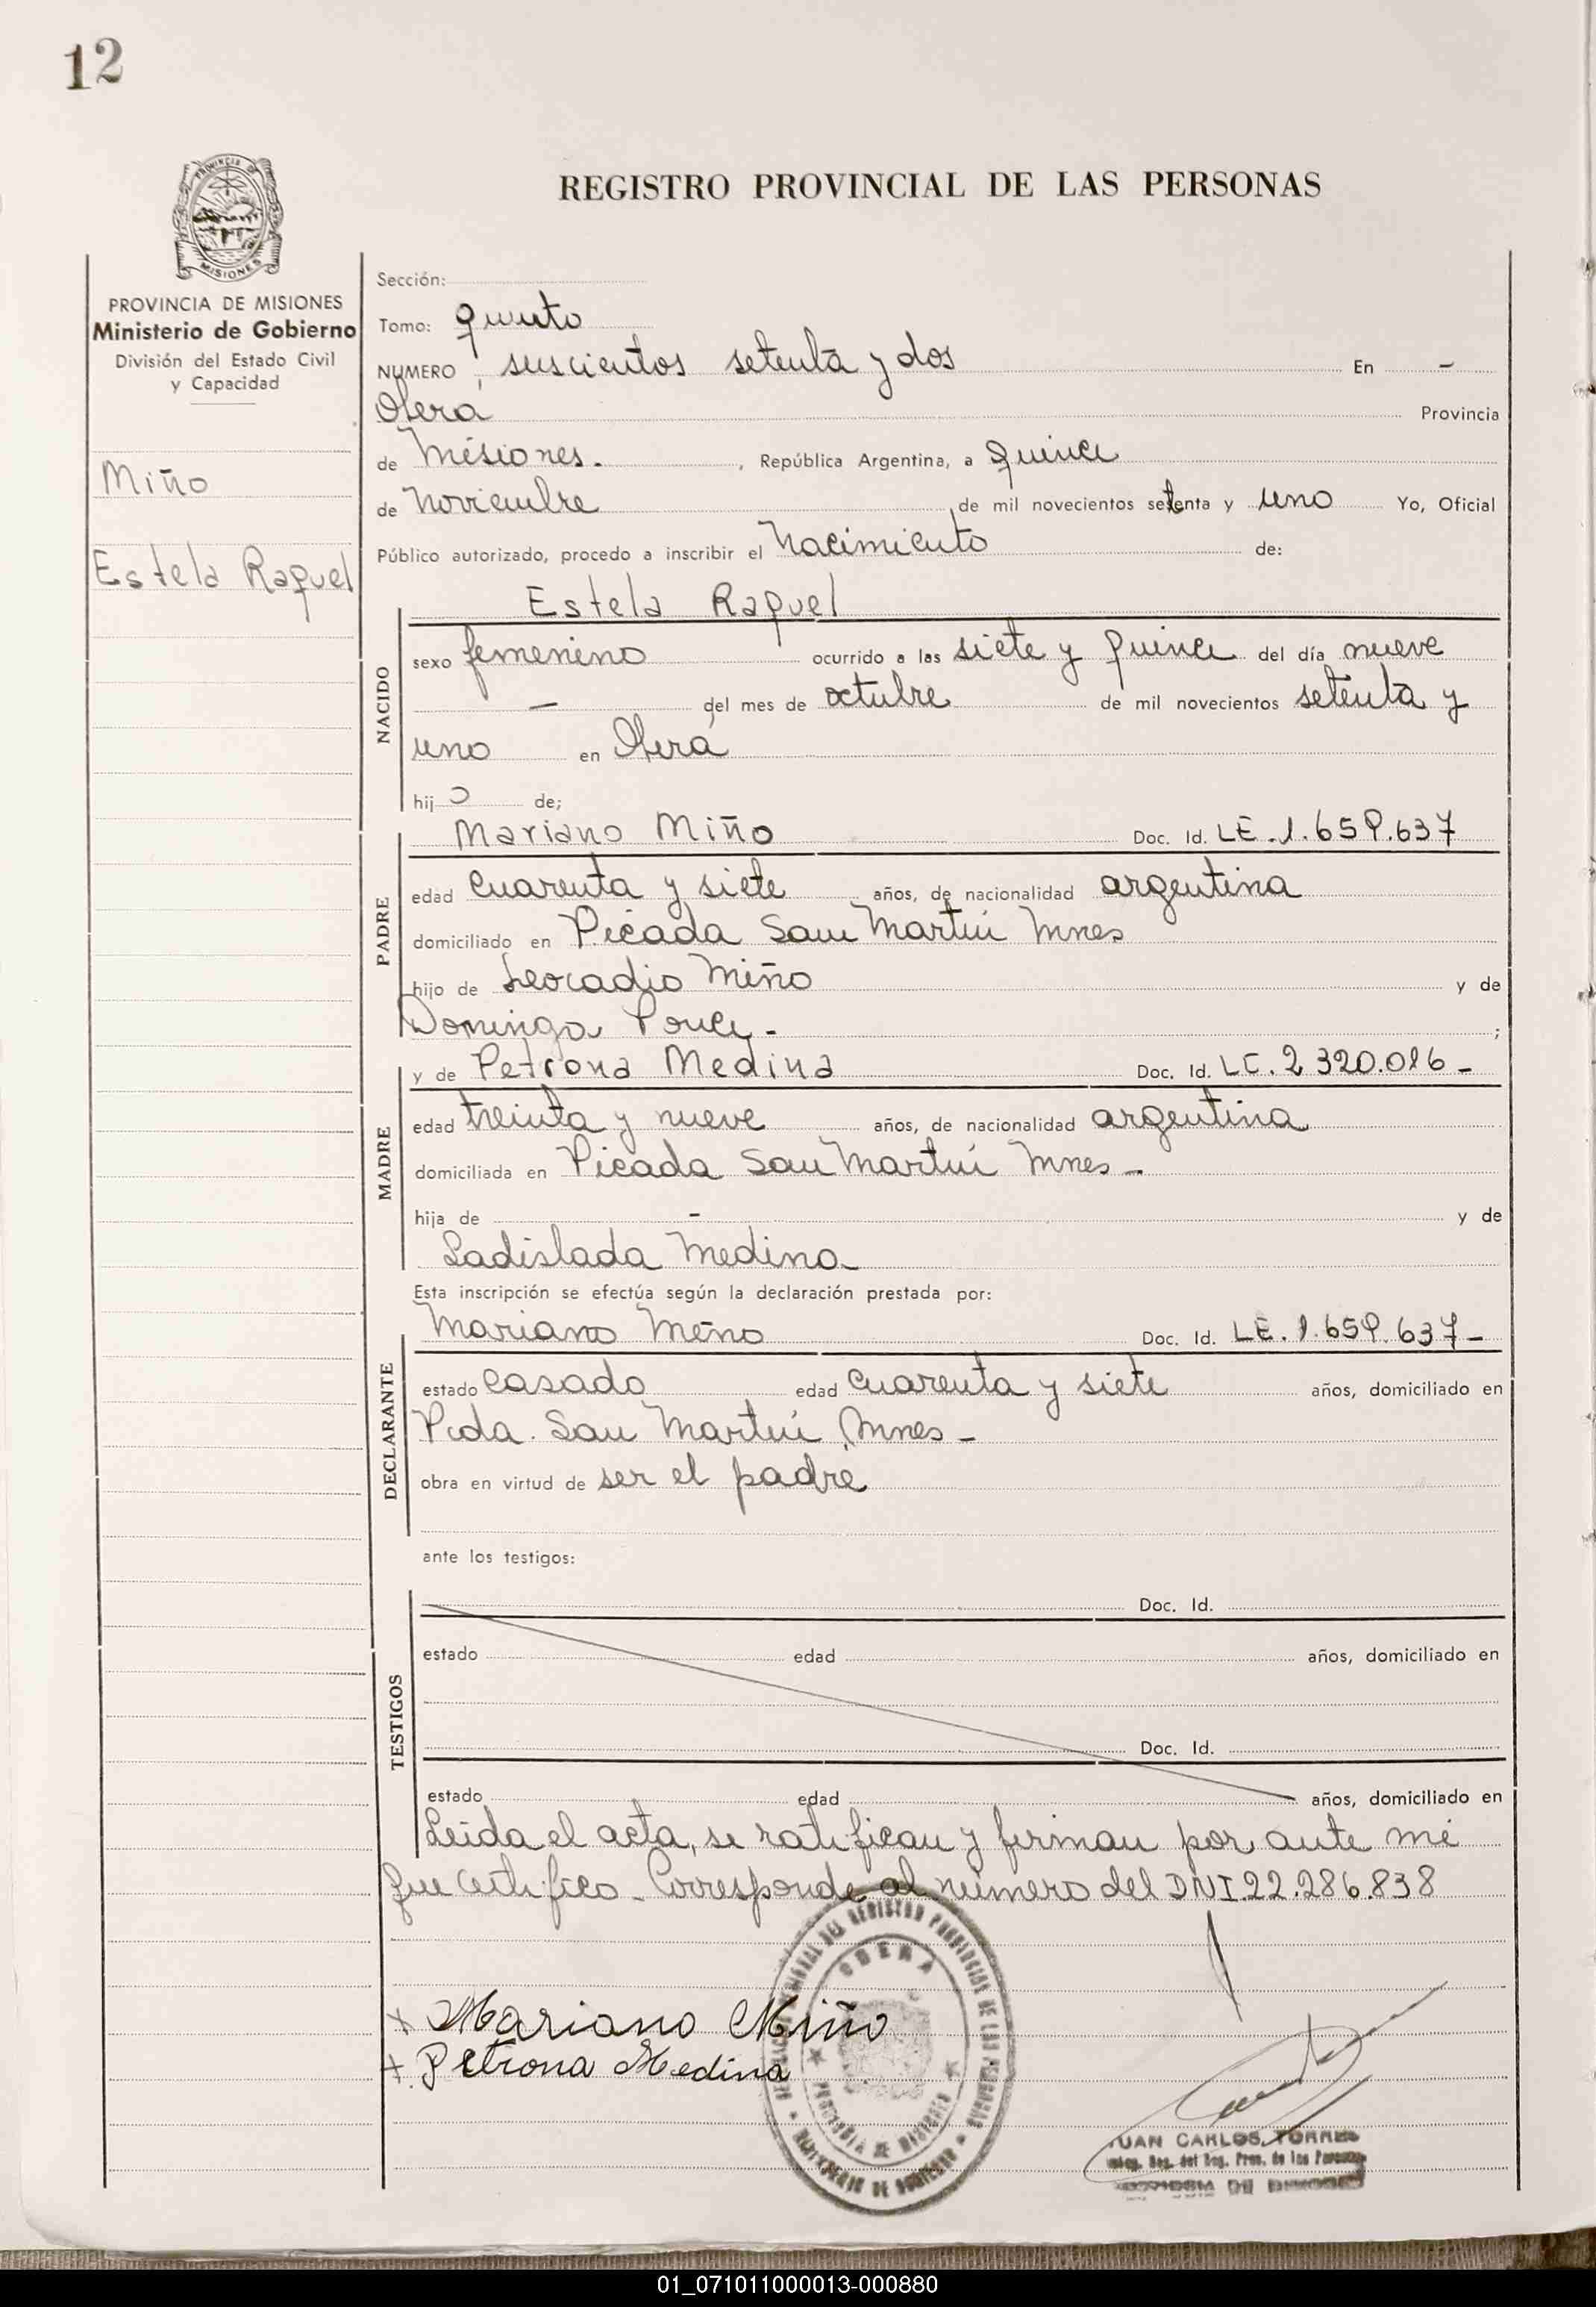 12
PROVINCIA DE MISIONES
REGISTRO PROVINCIAL DE LAS PERSONAS
PROVINCIA DE MISIONES
Ministerio de Gobierno
División del Estado Civil
y Capacidad
Miño
Estela Raquel
Sección:
Tomo: quinto
NUMERO seiscientos setenta y dos En -
Oberá Provincia
de Misiones. , República Argentina, a quince
de noviembre de mil novecientos setenta y uno Yo, Oficial
Público autorizado, procedo a inscribir el nacimiento de:
Estela Raquel
NACIDO
sexo femenino ocurrido a las siete y quince del día nueve
- del mes de octubre de mil novecientos setenta y
uno en Oberá
hij a de;
Mariano Miño Doc. Id. LE.1.659.637
PADRE
edad cuarenta y siete años, de nacionalidad argentina
domiciliado en Picada San Martín Mnes
hijo de Leocadio Miño y de
Dominga Ponce - ;
y de Petrona Medina Doc. Id. LC.2 320.016 -
MADRE
edad treinta y nueve años, de nacionalidad argentina
domiciliada en Picada San Martín Mnes -
hija de - y de
Ladislada Medina
Esta inscripción se efectúa según la declaración prestada por:
Mariano Miño Doc. Id. LE.1.659.637 -
DECLARANTE
estado casado edad cuarenta y siete años, domiciliado en
Pcda. San Martín, Mnes -
obra en virtud de ser el padre
ante los testigos:
Doc. Id.
TESTIGOS
estado edad años, domiciliado en
Doc. Id.
estado edad años, domiciliado en
Leida el acta, se ratifican y firman por ante mi
que certifico - Corresponde al número del DNI.22.286.838
OBERA
PROVINCIA DE MISIONES
MINISTERIO DE GOBIERNO
x Mariano Miño
x Petrona Medina
JUAN CARLOS TORRES
01_071011000013-000880